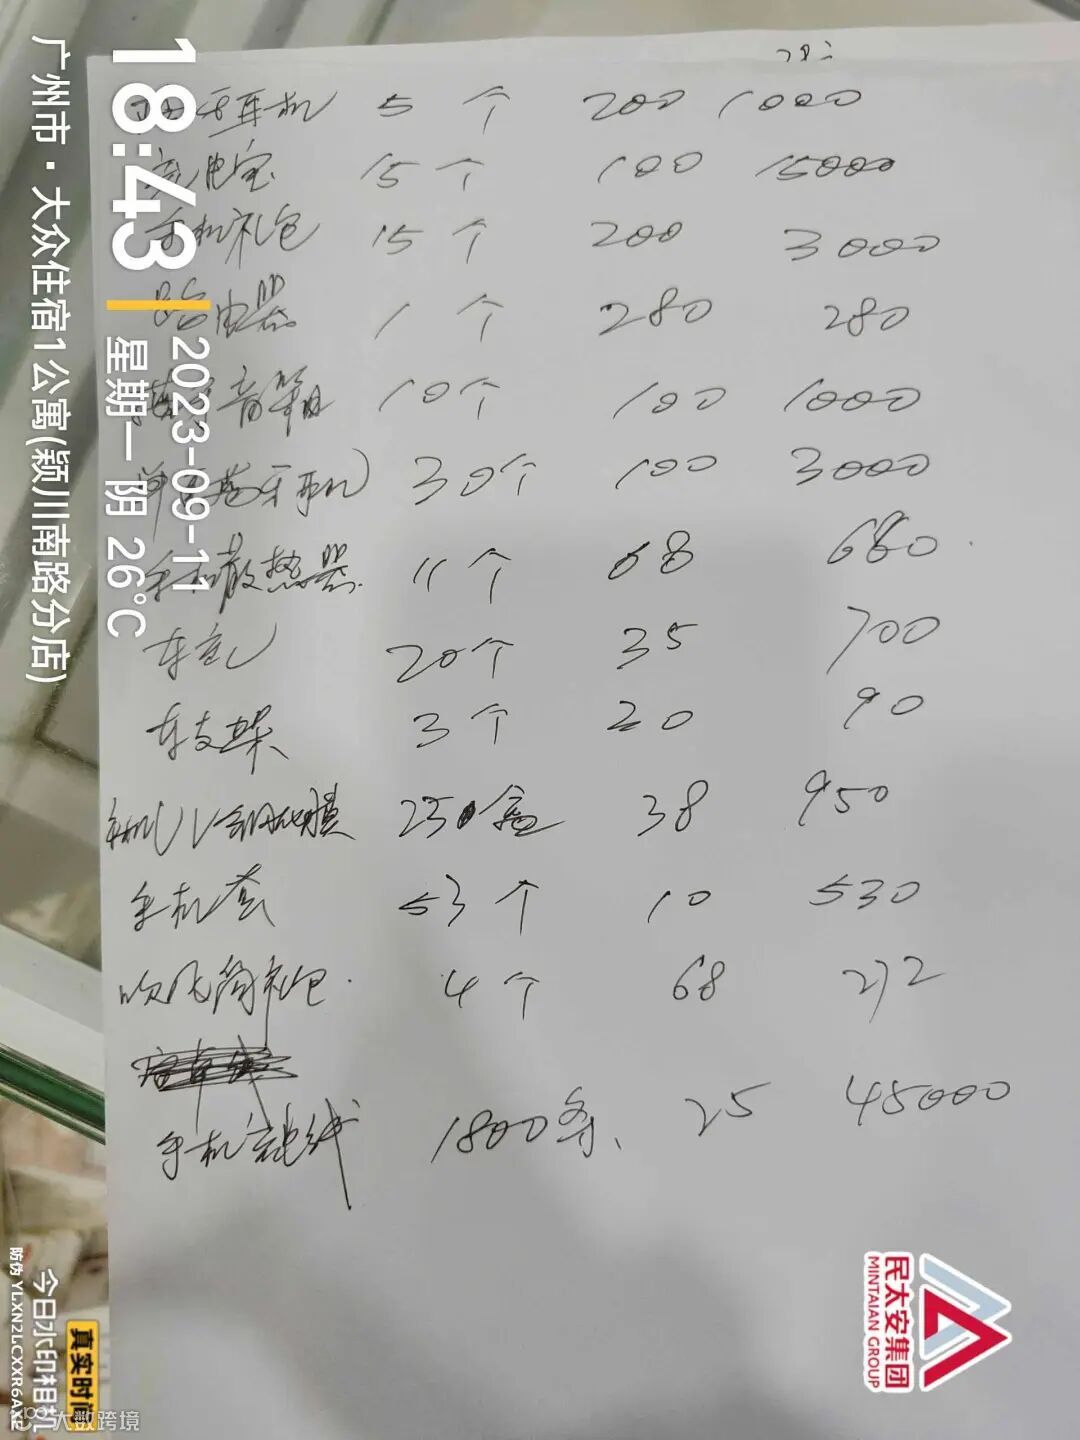 蓝牙耳机 5个 200 1000
充电宝 15个 100 15000
手机礼包 15个 200 3000
路由器 1个 280 280
蓝牙音箱 10个 100 1000
单边蓝牙耳机 30个 100 3000
手机散热器 11个 68 680
车充 20个 35 700
车支架 3个 20 90
手机UV钢化膜 250盒 38 950
手机套 53个 10 530
吹风筒礼包 4个 68 272
手机充电线 1800条、 25 45000
18:43
2023-09-11
星期一 阴 26℃
广州市·大众住宿1公寓(颍川南路分店)
民太安集团
MINTAIAN GROUP
今日水印相机
真实时间
防伪 YLXN2LCXXR6AXE
大数跨境